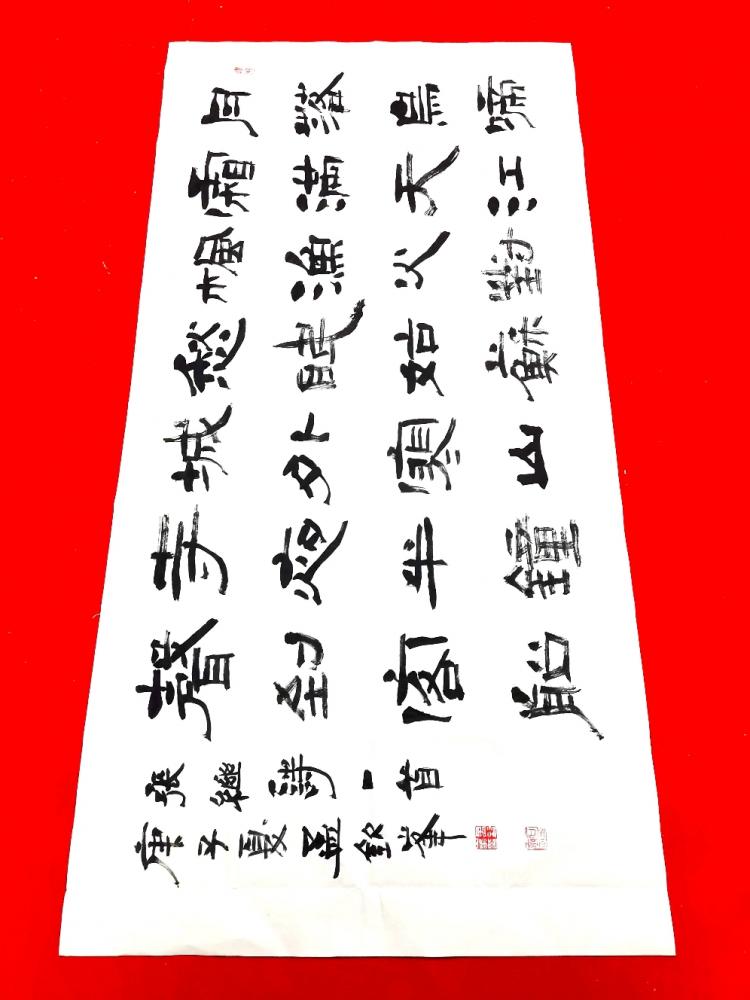 月落烏啼
霜滿天江
楓漁火對
愁眠姑蘇
城外寒山
寺夜半鐘
聲到客船
張繼詩一首
庚子夏峯